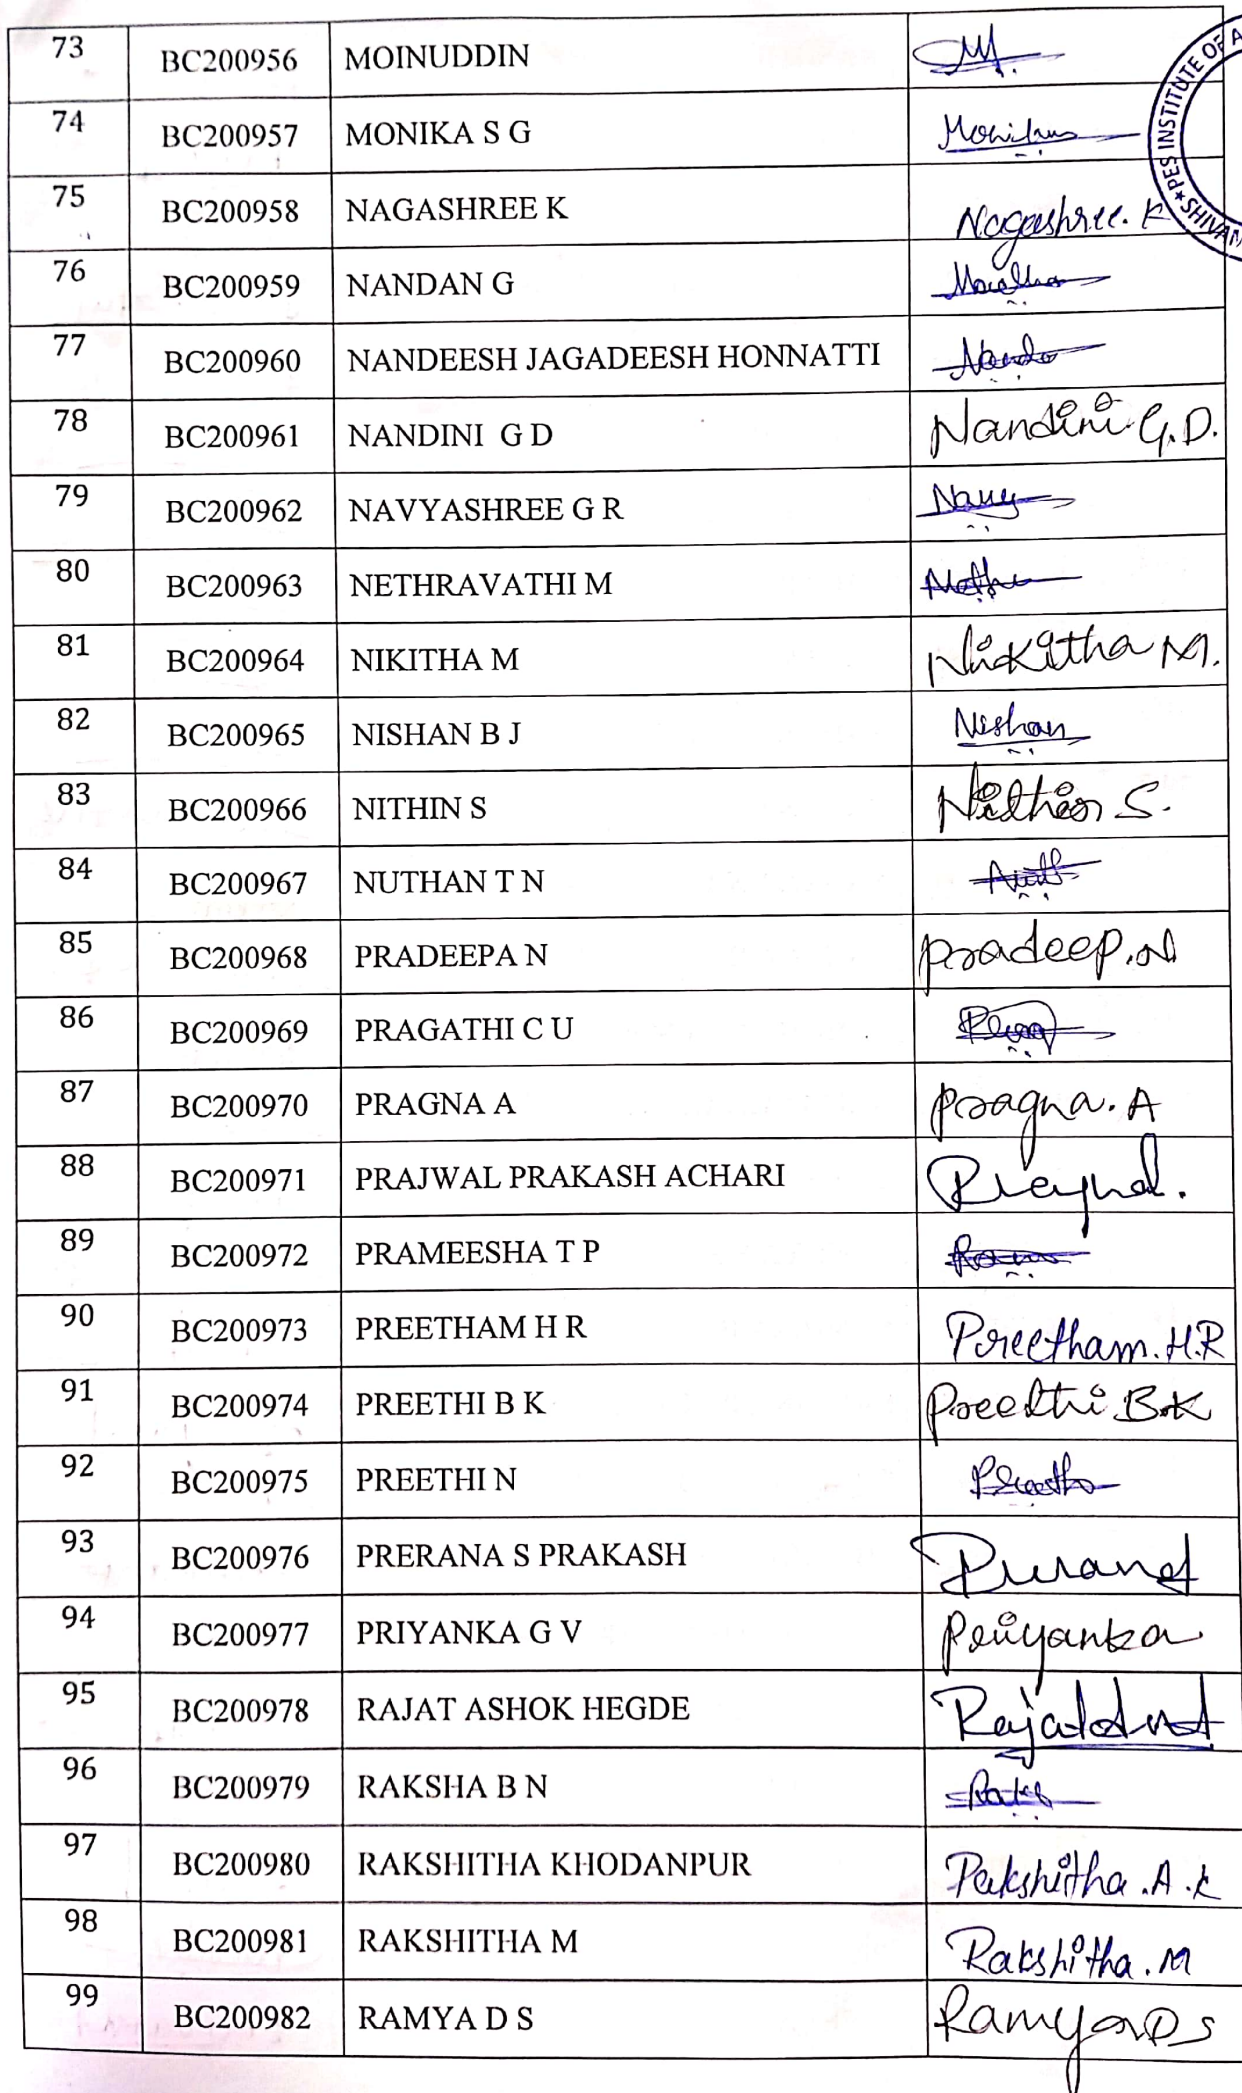 73 BC200956 MOINUDDIN
PES INSTITUTE OF A
74 BC200957 MONIKA S G
75 BC200958 NAGASHREE K Nagashree. K
76 BC200959 NANDAN G
77 BC200960 NANDEESH JAGADEESH HONNATTI
78 BC200961 NANDINI G D Nandini G.D.
79 BC200962 NAVYASHREE G R
80 BC200963 NETHRAVATHI M
81 BC200964 NIKITHA M Nikitha M.
82 BC200965 NISHAN B J Nishan
83 BC200966 NITHIN S Nithin S.
84 BC200967 NUTHAN T N
85 BC200968 PRADEEPA N pradeep.N
86 BC200969 PRAGATHI C U
87 BC200970 PRAGNA A pragna. A
88 BC200971 PRAJWAL PRAKASH ACHARI
89 BC200972 PRAMEESHA T P
90 BC200973 PREETHAM H R Preetham. H.R
91 BC200974 PREETHI B K Preethi B.K
92 BC200975 PREETHI N
93 BC200976 PRERANA S PRAKASH
94 BC200977 PRIYANKA G V Priyanka
95 BC200978 RAJAT ASHOK HEGDE
96 BC200979 RAKSHA B N
97 BC200980 RAKSHITHA KHODANPUR Rakshitha .A .K
98 BC200981 RAKSHITHA M Rakshitha . M
99 BC200982 RAMYA D S Ramya D S